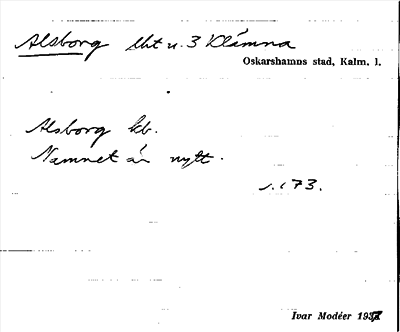 Alsborg lht u. 3 Klämna
Oskarshamns stad, Kalm. l.
Alsborg kb.
Namnet är nytt.
s. 173.
Ivar Modéer 193